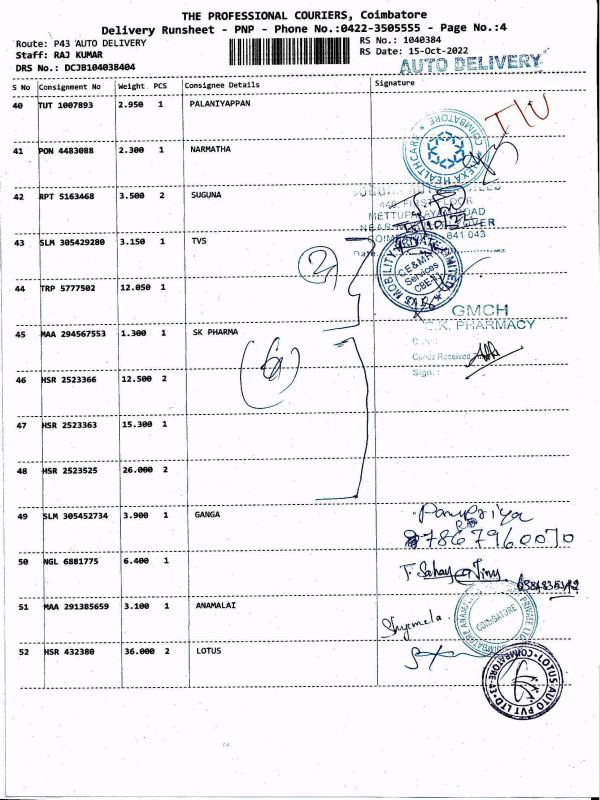 THE PROFESSIONAL COURIERS, Coimbatore
Delivery Runsheet - PNP - Phone No.:0422-3505555 - Page No.:4
Route: P43 AUTO DELIVERY
RS No.: 1040384
Staff: RAJ KUMAR
RS Date: 15-Oct-2022
DRS No.: DCJB104038404
AUTO DELIVERY
S No Consignment No Weight PCS Consignee Details Signature
40 TUT 1007893 2.950 1 PALANIYAPPAN
41 PON 4483088 2.300 1 NARMATHA
42 RPT 5163468 3.500 2 SUGUNA
METTUPALAYAM ROAD
641 043
43 SLM 305429280 3.150 1 TVS
Date
MOBILITY PRIVATE LIMITED
CE&MH
Services
44 TRP 5777502 12.050 1
GMCH
S.K. PHARMACY
45 MAA 294567553 1.300 1 SK PHARMA
Date:
Goods Received
Sign.:
46 HSR 2523366 12.500 2
47 HSR 2523363 15.300 1
48 HSR 2523525 26.000 2
49 SLM 305452734 3.900 1 GANGA
7867960070
50 NGL 6881775 6.400 1
51 MAA 291385659 3.100 1 ANAMALAI
COIMBATORE
52 HSR 432380 36.000 2 LOTUS
LOTUS AUTO PVT LTD COIMBATORE-43